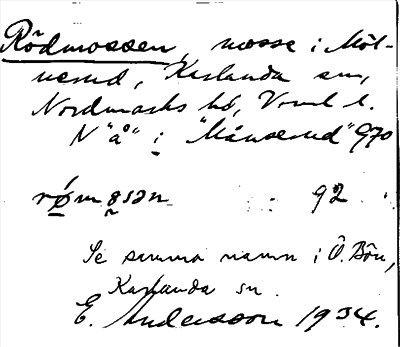 Rödmossen, mosse i Möl-
nerud, Karlanda sn,
Nordmarks hd, Vrml l.
N "å" i "Månserud" G70
92
Se samma namn i Ö. Bön,
Karlanda sn.
E. Andersson 1934.